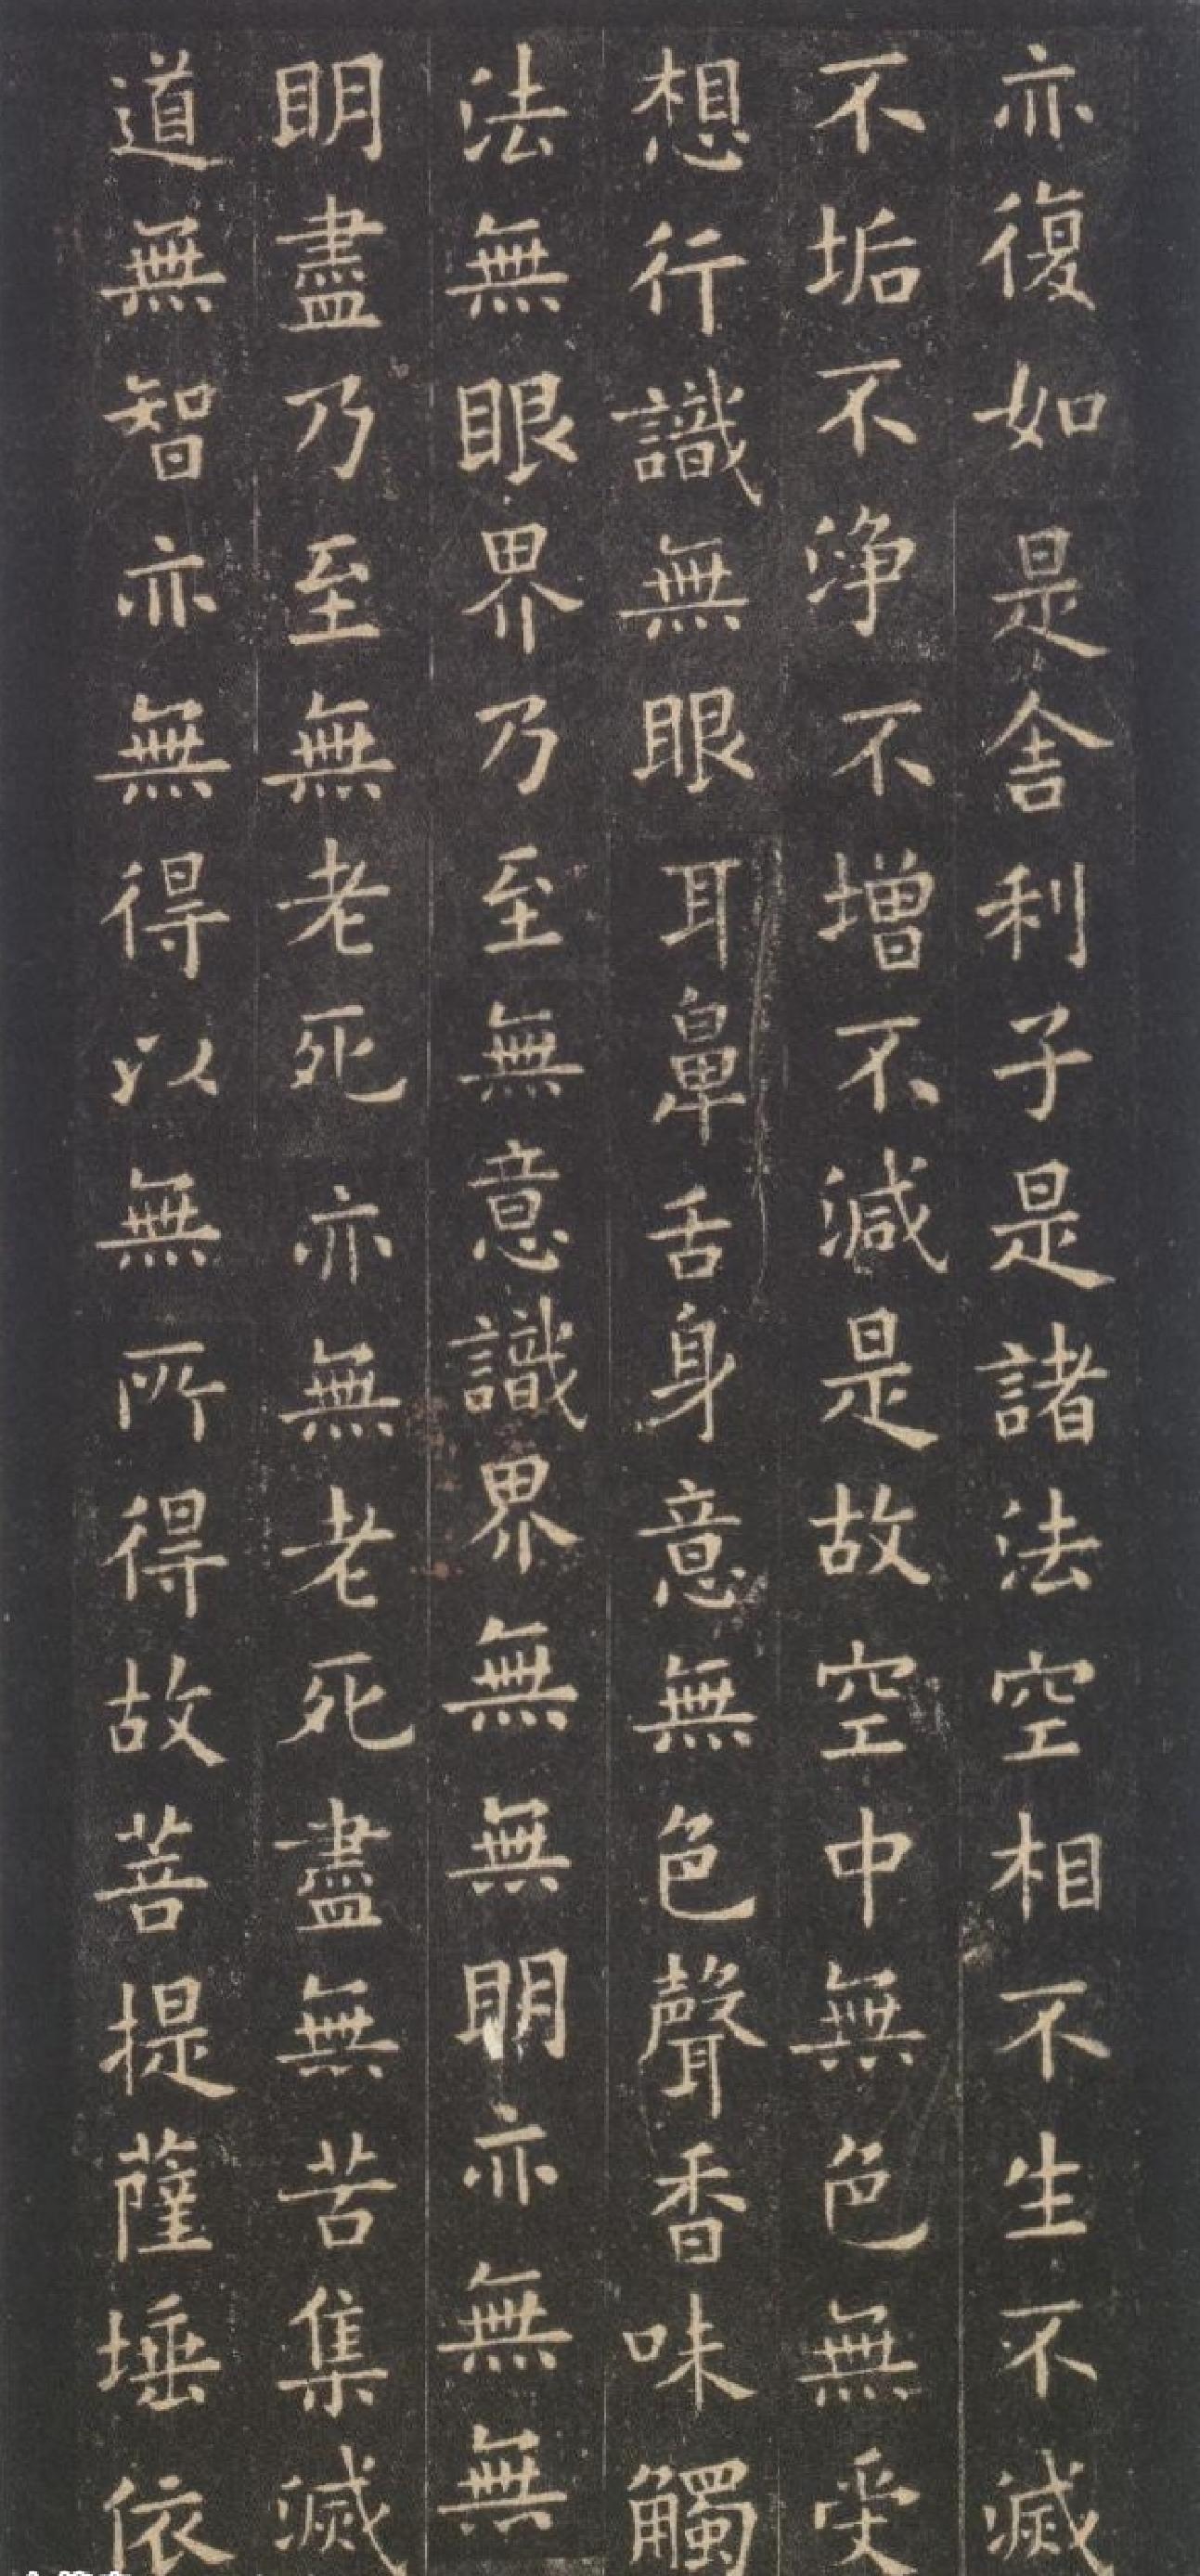 亦復如是舍利子是諸法空相不生不滅
不垢不淨不增不減是故空中無色無受
想行識無眼耳鼻舌身意無色聲香味觸
法無眼界乃至無意識界無無明亦無無
明盡乃至無老死亦無老死盡無苦集滅
道無智亦無得以無所得故菩提薩埵依